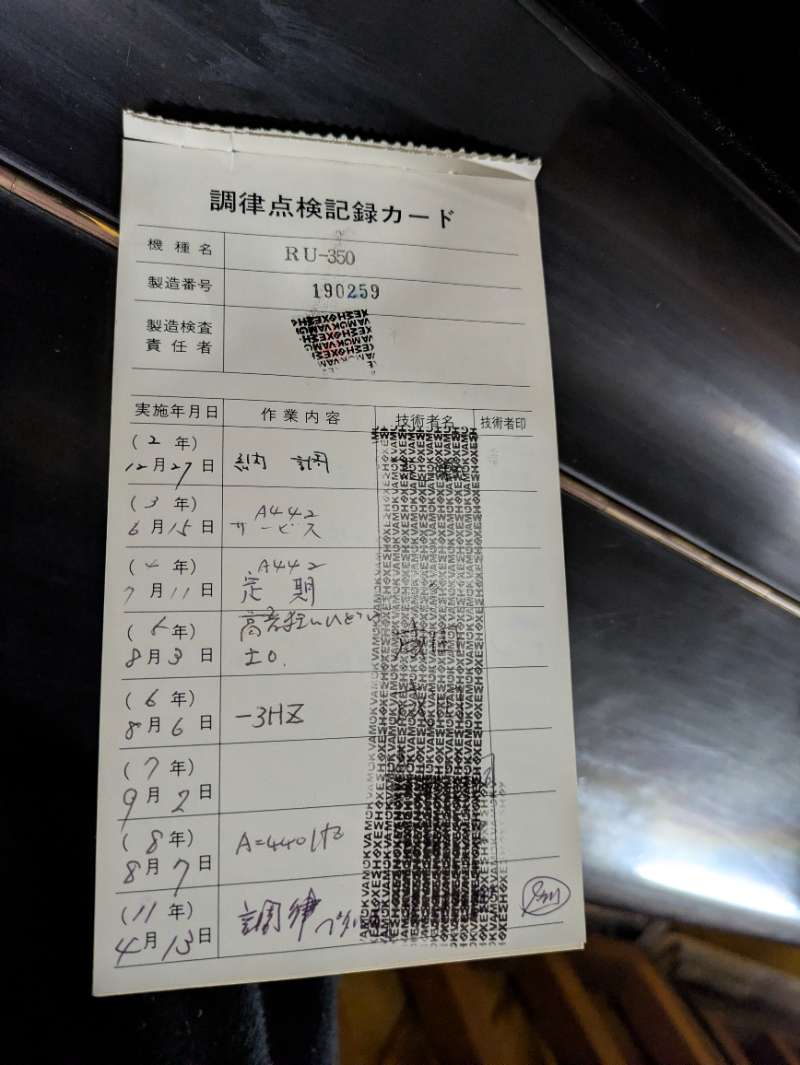 調律点検記録カード
機種名 RU-350
製造番号 190259
製造検査
責任者
実施年月日 作業内容 技術者名 技術者印
(2年)
12月27日 納調
(3年) A442
6月15日 サービス
(4年) A442
7月11日 定期
(5年) 高音狂い
8月3日 ±0.
(6年)
8月6日 -3HZ
(7年)
9月2日
(8年)
8月7日 A=440HZ
(11年)
4月13日 調律